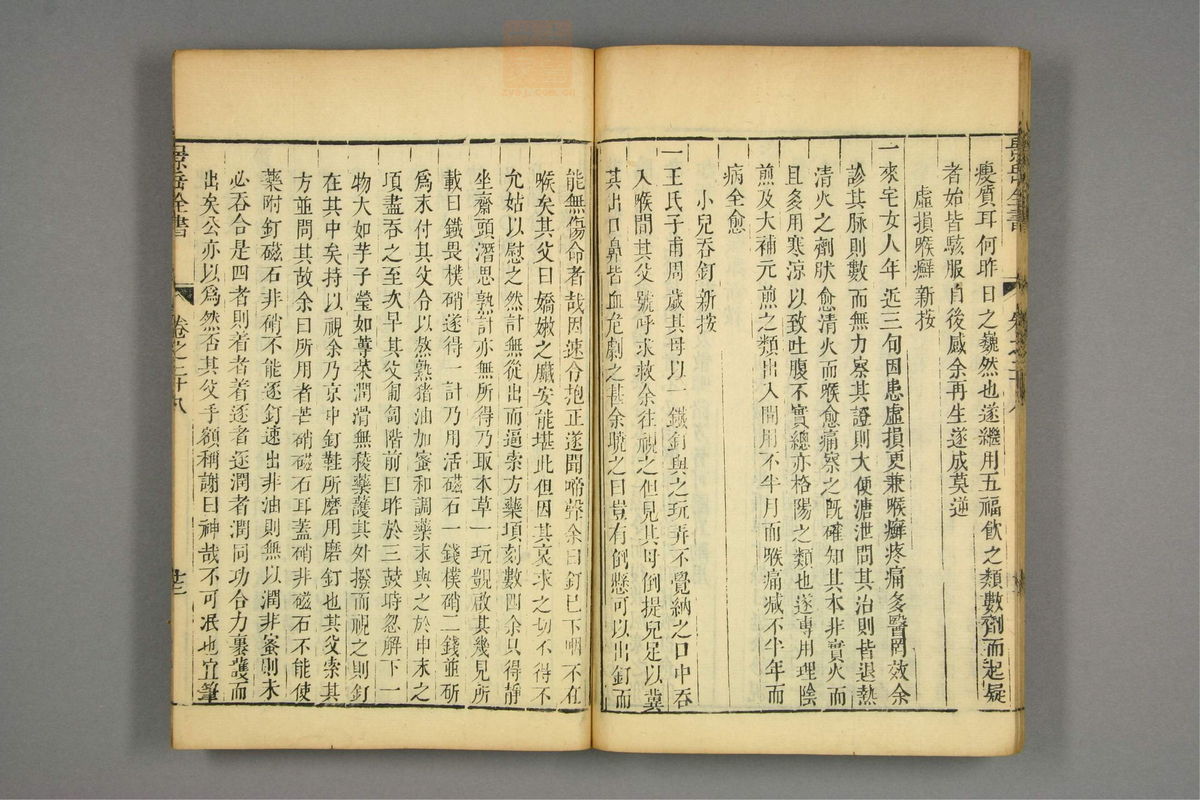 瘦質耳何昨日之巍然也遂繼用五福飲之類數劑而起疑
者始皆駭服自後感余再生遂成莫逆
虛損喉癬新按
一來宅女人年近三旬因患虛損更兼喉癬疼痛多醫罔效余
診其脉則數而無力察其證則大便溏泄問其治則皆退熱
清火之劑然愈清火而喉愈痛察之既確知其本非實火而
且多用寒涼以致吐腹不實總亦格陽之類也遂專用理陰
煎及大補元煎之類出入間用不半月而喉痛減不半年而
病全愈
小兒吞釘新按
一王氏子甫周歲其母以一鐵釘與之玩弄不覺納之口中吞
入喉間其父號呼求救余往視之但見其母倒提兒足以冀
其出口鼻皆血危劇之甚余曉之曰豈有倒懸可以出釘而
能無傷命者哉因速令抱正遂聞啼聲余曰釘已下咽不在
喉矣其父曰嬌嫩之臟安能堪此但因其哀求之切不得不
允姑以慰之然計無從出而逼索方藥項刻數四余只得靜
坐齋頭潛思熟計亦無所得乃取本草一玩覬啟其幾見所
載曰鐵畏樸硝遂得一計乃用活磁石一錢樸硝二錢並研
爲末付其父令以熬熟猪油加蜜和調藥末與之於申末之
項盡吞之至次早其父匍匐階前曰昨於三鼓時忽解下一
物大如芋子瑩如蓴菜潤滑無稜藥護其外撥而視之則釘
在其中矣持以視余乃京中釘鞋所磨用磨釘也其父索其
方並問其故余曰所用者芒硝磁石耳蓋硝非磁石不能使
藥附釘磁石非硝不能逐釘速出非油則無以潤非蜜則未
必吞合是四者則着者着逐者逐潤者潤同功合力裹護而
出矣公亦以爲然否其父手額稱謝曰神哉不可泯也宜筆
景岳全書
卷之二十八
廿三